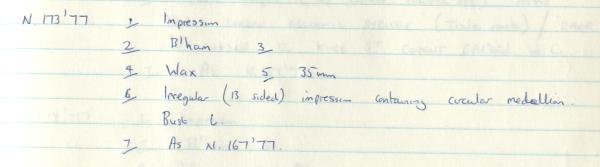 N. 173'77 1 Impression
2 B'ham 3
4 Wax 5 35mm
6 Irregular (13 sided) impression containing circular medallion.
Bust l.
7 As N. 167'77.